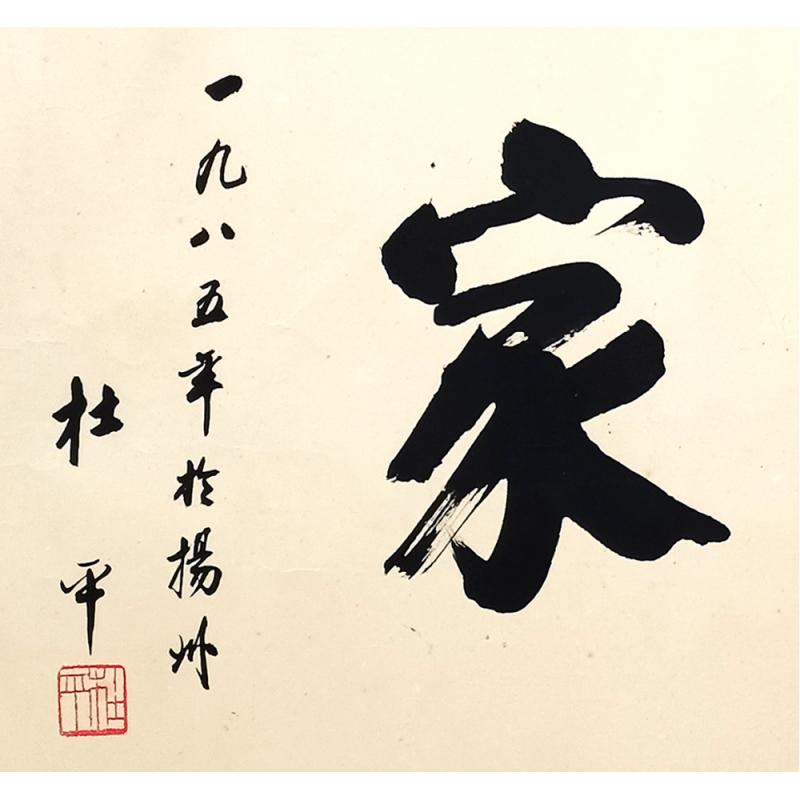 家
一九八五年於揚州
杜平
杜平